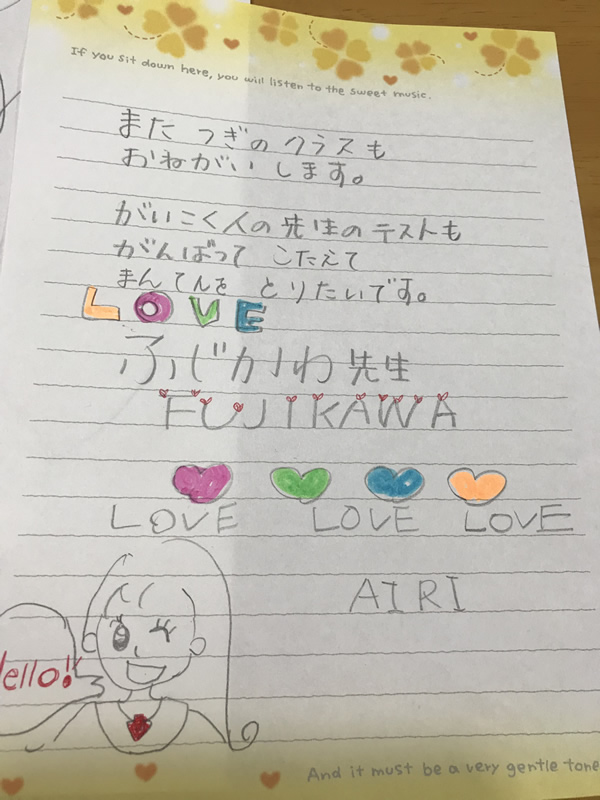 If you sit down here, you will listen to the sweet music.
また つぎの クラスも
おねがい します。
がいこく人の 先生の テストも
がんばって こたえて
まんてんを とりたいです。
LOVE
ふじかわ 先生
FUJIKAWA
LOVE LOVE LOVE
AIRI
Hello!
And it must be a very gentle tone